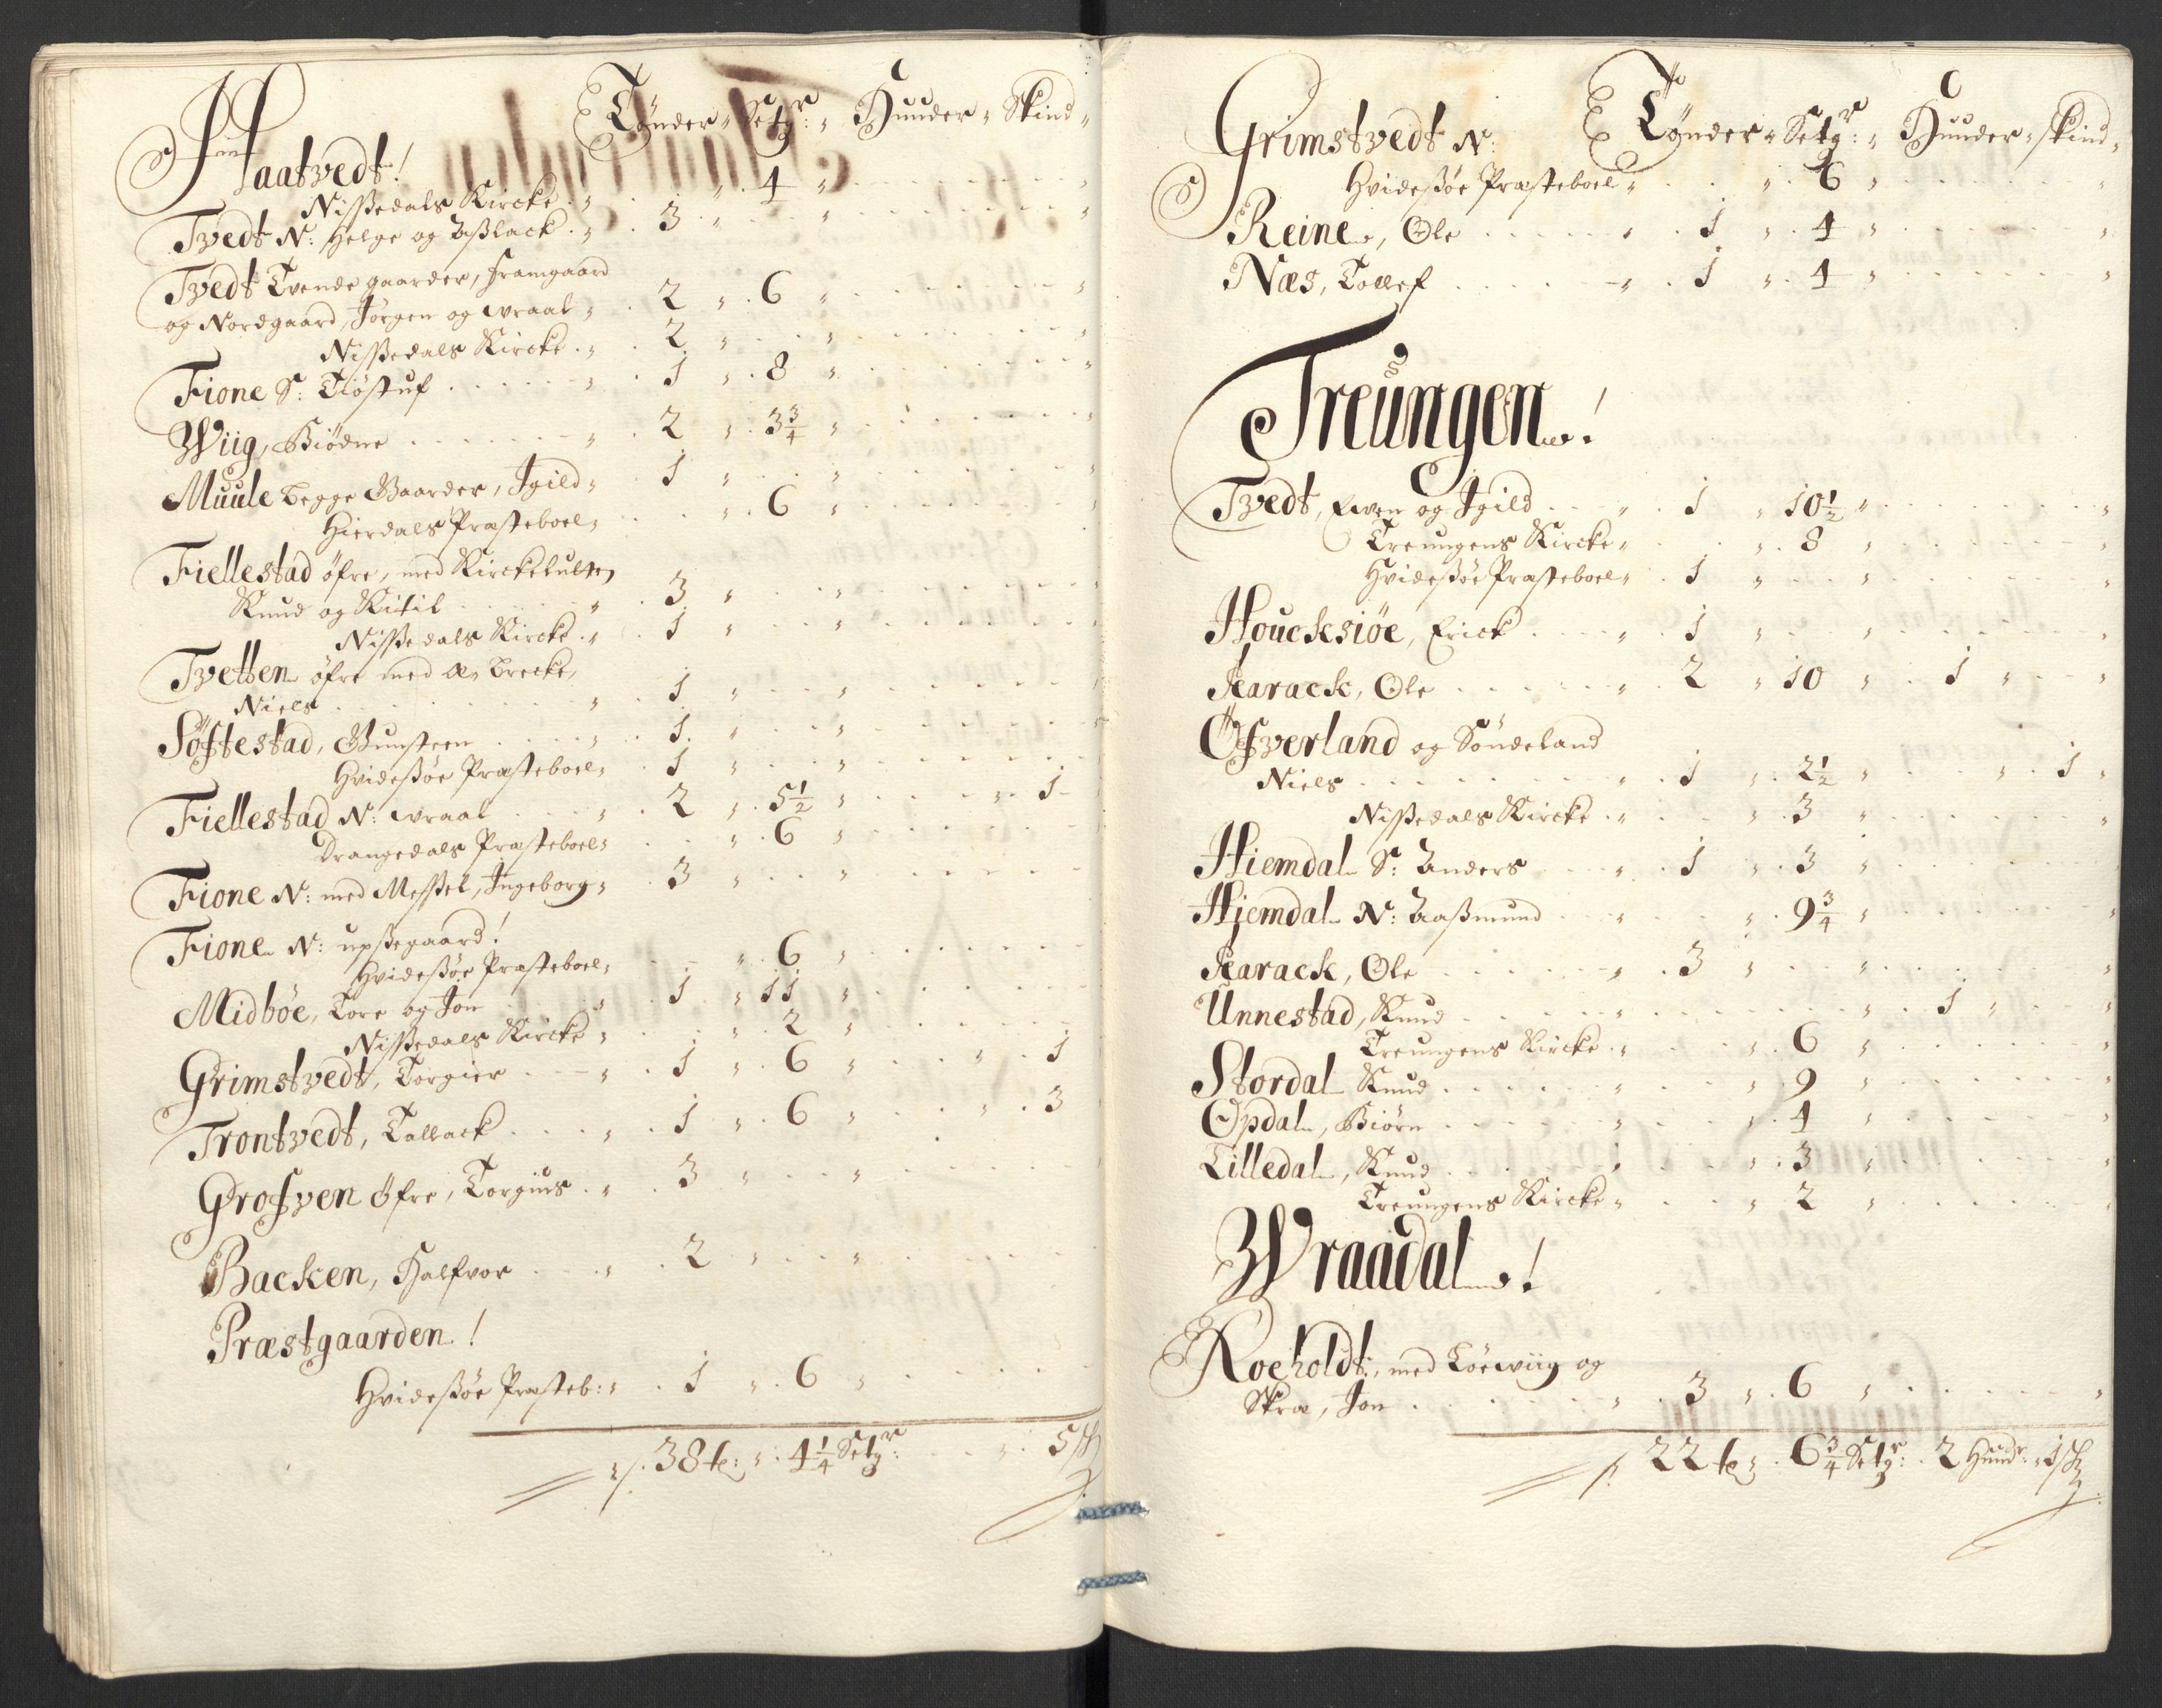 Tønder " Setgr: " Huuder " Skind "
Haatvedt!
Nißedals Kircke . " . . " . 4 "
Tvedt N: Helge og Aßlack . " . 3 " . . "
Tvedt Tvende gaarder, Framgaard
og Nordgaard, Jørgen og wraal " . 2 " . 6 "
Nißedals Kircke . " . 2 " . . "
Fione S: Tiøstuf . . . . " . 1 " . 8 "
Wiig, Biødne . . . . " . 2 " . 3 3/4 "
Muule begge Gaarder, Igild " . 1 " . . "
Hierdals Præsteboel " . . " . 6 "
Fiellestad øfre, med Kirckelulten
Knud og Kitil . . . " . 3 " . . "
Nißedals Kircke . " . 1 " . . "
Tvetten øfre med Aabrecke,
Niels . . . . " . 1 " . . "
Søftestad, Gunsteen . . . " . 1 " . . "
Hvideßøe Præsteboel " . 1 " . . "
Fiellestad N: wraal . . " . 2 " . 5 1/2 " . . " . 1
Drangedals Præsteboel " . . " . 6 "
Fione N: med Messel, Ingeborg " . 3 " . . "
Fione N: upßegaard!
Hvideßøe Præsteboel " . . " . 6 "
Midbøe, Tore og Jon . . . " . 1 " 11 "
Nißedals Kircke " . . " . 2 "
Grimstvedt, Torgier . . " . 1 " . 6 " . . " . 1
Trontvedt, Tallack . . . " . 1 " . 6 " . . " . 3
Grofven Øfre, Torgius . " . 3 " . . "
Backen, Halfvor . . . " . 2 " . . "
Præstgaarden!
Hvideßøe Præsteb: " . 1 " . 6 "
38 t: " . 4 1/4 Setgr: . . " . 5 ß
Tønder " Setgr: " Huuder " skind "
Grimstvedt N:
Hvideßøe Præsteboel " . . " . 6 "
Reine, Ole . . . . " . 1 " . 4 "
Næs, Tollef . . . . " . 1 " . 4 "
Treungen!
Tvedt, Even og Igild . . " . 1 " 10 1/2 "
Treungens Kircke " . . " . 8 "
Hvideßøe Præsteboel " . 1 " . . "
Houcksiøe, Erick . . . " . 1 " . . "
Karack, Ole . . . . " . 2 " 10 " . 1 "
Øfverland og Sønderland
Niels . . . . " . 1 " . 2 1/2 " . . " . 1 "
Nißedals Kircke . " . . " . 3 "
Hiemdal S: Anders . . . " . 1 " . 3 "
Hiemdal N: Aaßmund . . " . . " . 9 3/4 "
Karack, Ole . . . . " . 3 " . . "
Unnestad, Knud . . . . " . . . . " . 1 "
Treungens Kircke . " . . " . 6 "
Stordal Knud . . . . " . . " . 9 "
Opdal, Biørn . . . . " . . " . 4 "
Lilledal, Knud . . . . " . . " . 3 "
Treungens Kircke " . . " . 2 "
Wraadal!
Roeholdt, med Løewiig og
Skræ, Jon . . . . " . 3 " . 6 "
22 t: " . 6 3/4 Setgr: . 2 Hund: " 1 ß